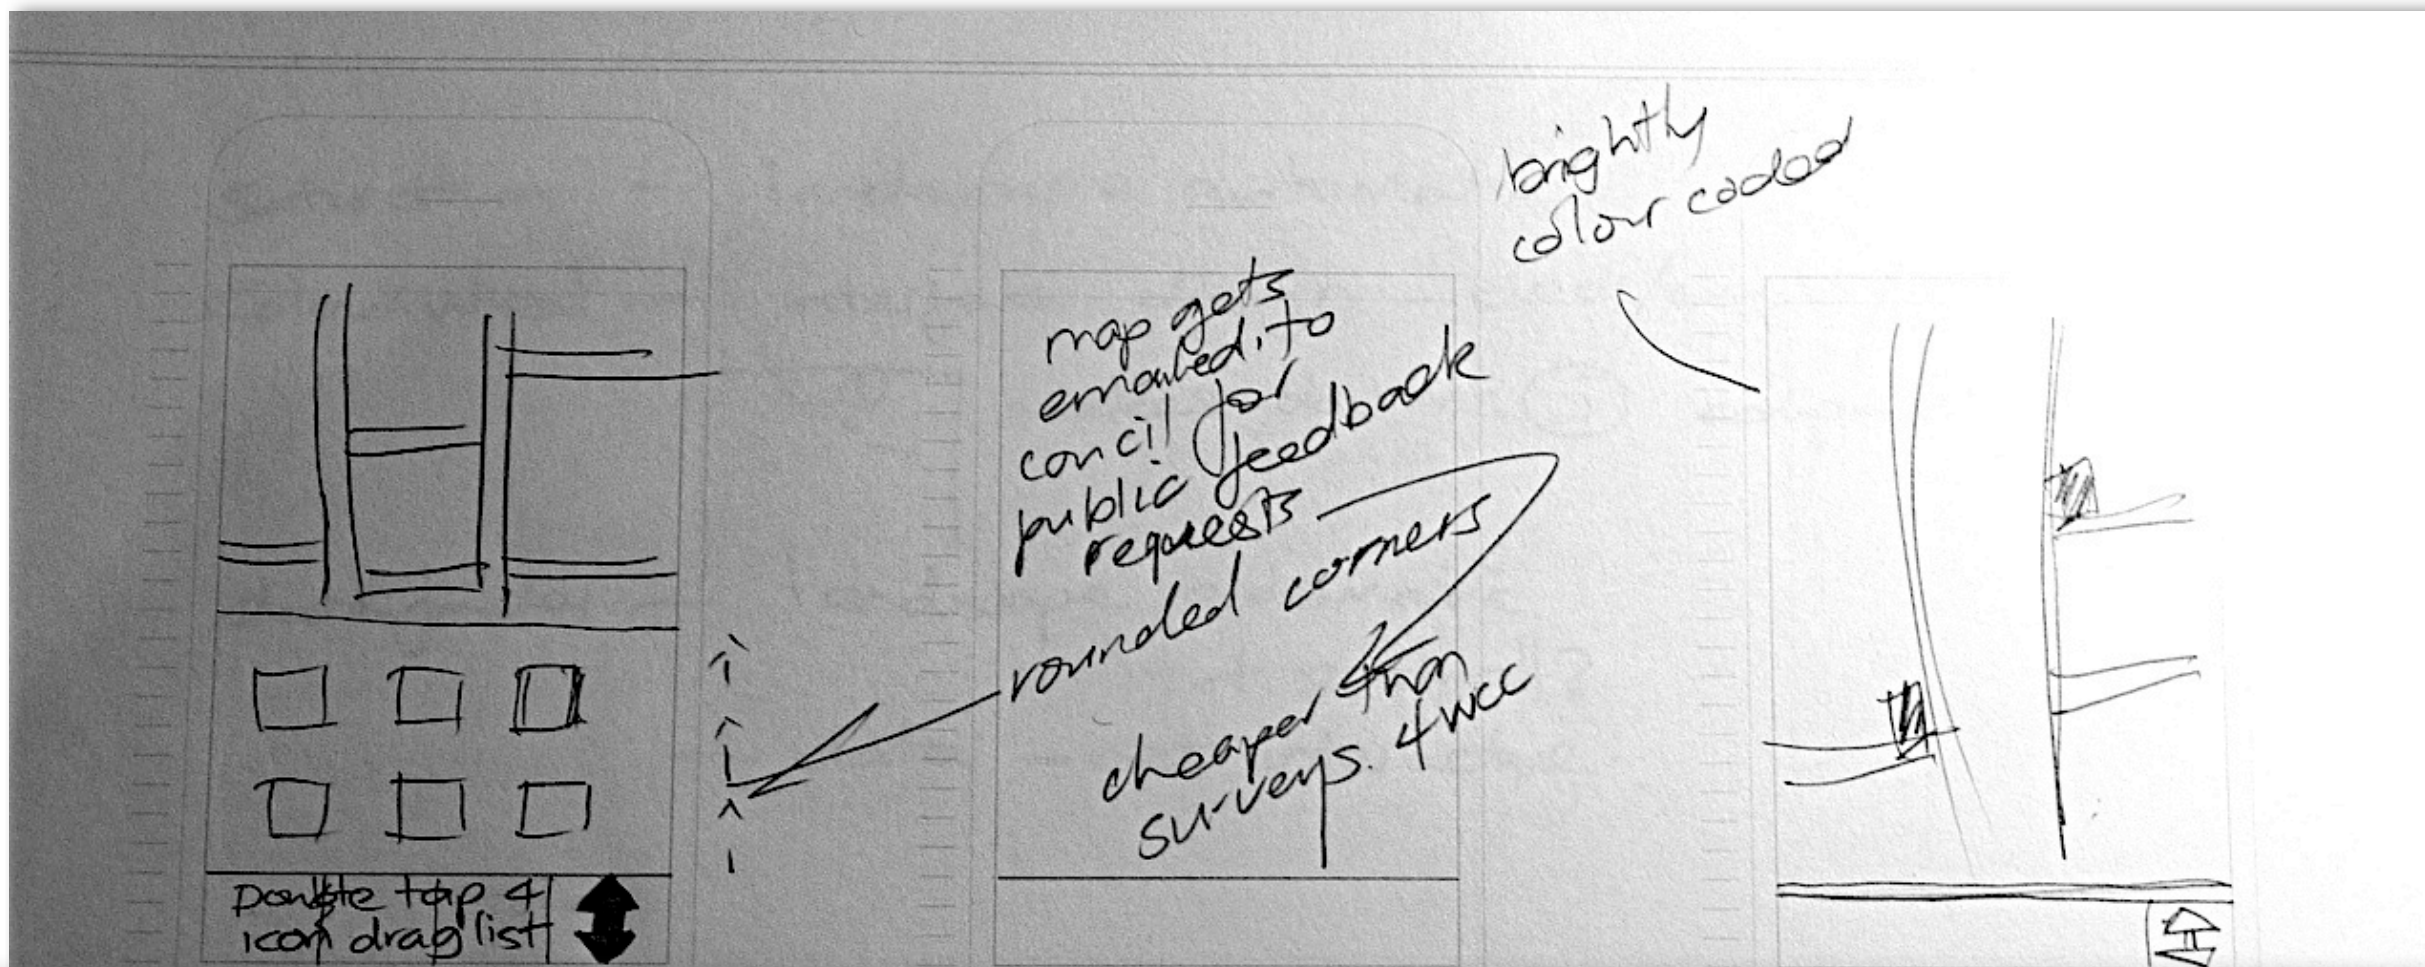 brightly
colour coded
map gets
emailed to
concil for
public feedback
requests
rounded corners
cheaper than
surveys. 4 WCC
Double tap 4
icon drag list